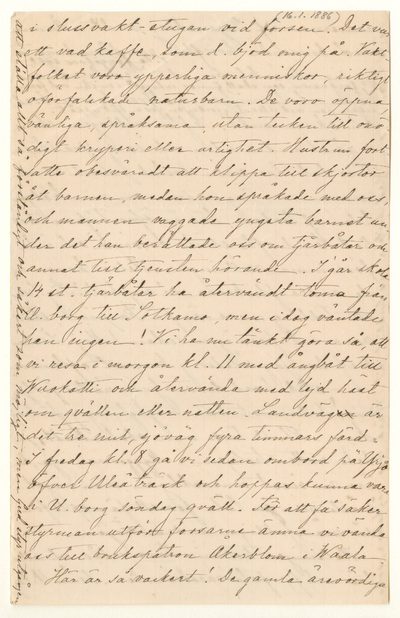 (16.1.1886)
i slussvakt-stugan vid forsen. Det var
ett vad kaffe, som d. bjöd mig på. Vakt
folket voro ypperliga menniskor, riktigt
oförfalskade naturbarn. De voro öppna
vänliga, språksama, utan tecken till onö
digt krypveri eller artighet. Hustrun fort
satte obesväradt att klippa till skjortor
åt barnen, medan hon språkade med oss,
och mannen vaggade yngsta barnet un
der det han berättade oss om tjärbåtar och
annat till tjensten hörande. I går skola
14 st. tjärbåtar ha återvändt toma från
U.borg till Sotkamo, men i dag väntade
han ingen! Vi ha nu tänkt göra så, att
vi resa i morgon kl. 11 med ångbåt till
Wuokatti och återvända med lejd häst
om qvällen eller natten. Landvägen är
det tre mil, sjöväg fyra timmars färd.
I fredag kl. 8 gå vi sedan ombord på
öfver Uleåträsk och hoppas kunna vara
i U.borg söndag qväll. För att få säker
styrman utför forsarne ämna vi vända
oss till brukspatron Åkerblom i Waala
Här är så vackert! De gamla ärevördiga